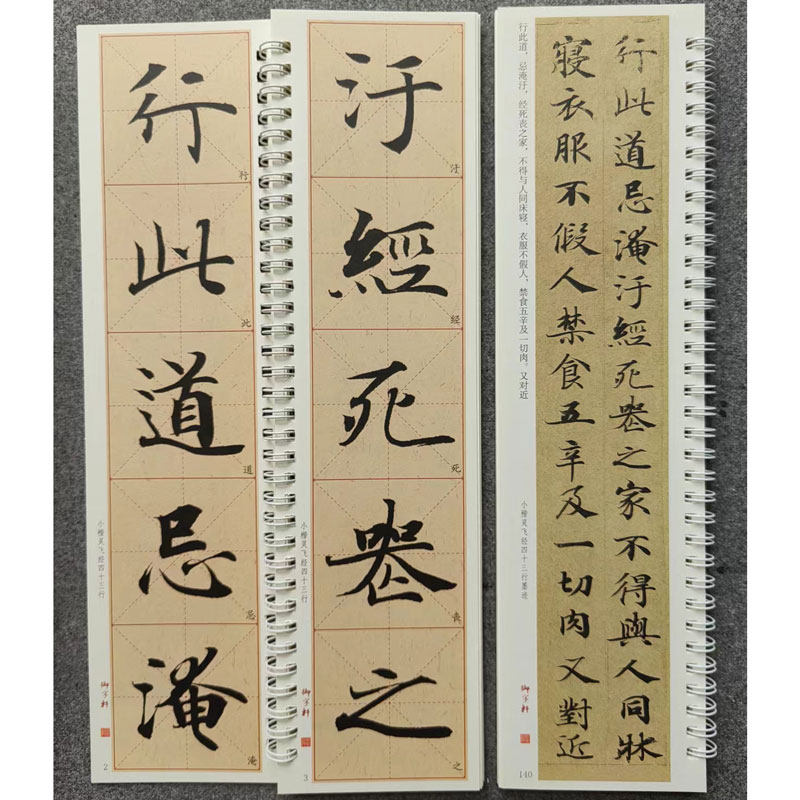 行此道忌淹
行
此
道
忌
淹
小楷灵飞经四十三行
御字轩
2
汙經死喪之
汙
经
死
丧
之
小楷灵飞经四十三行
御字轩
3
行此道忌淹汙經死喪之家不得與人同牀
寢衣服不假人禁食五辛及一切肉又對近
行此道，忌淹汙，经死丧之家，不得与人同床寝，衣服不假人，禁食五辛及一切肉。又对近
小楷灵飞经四十三行墨迹
御字轩
140